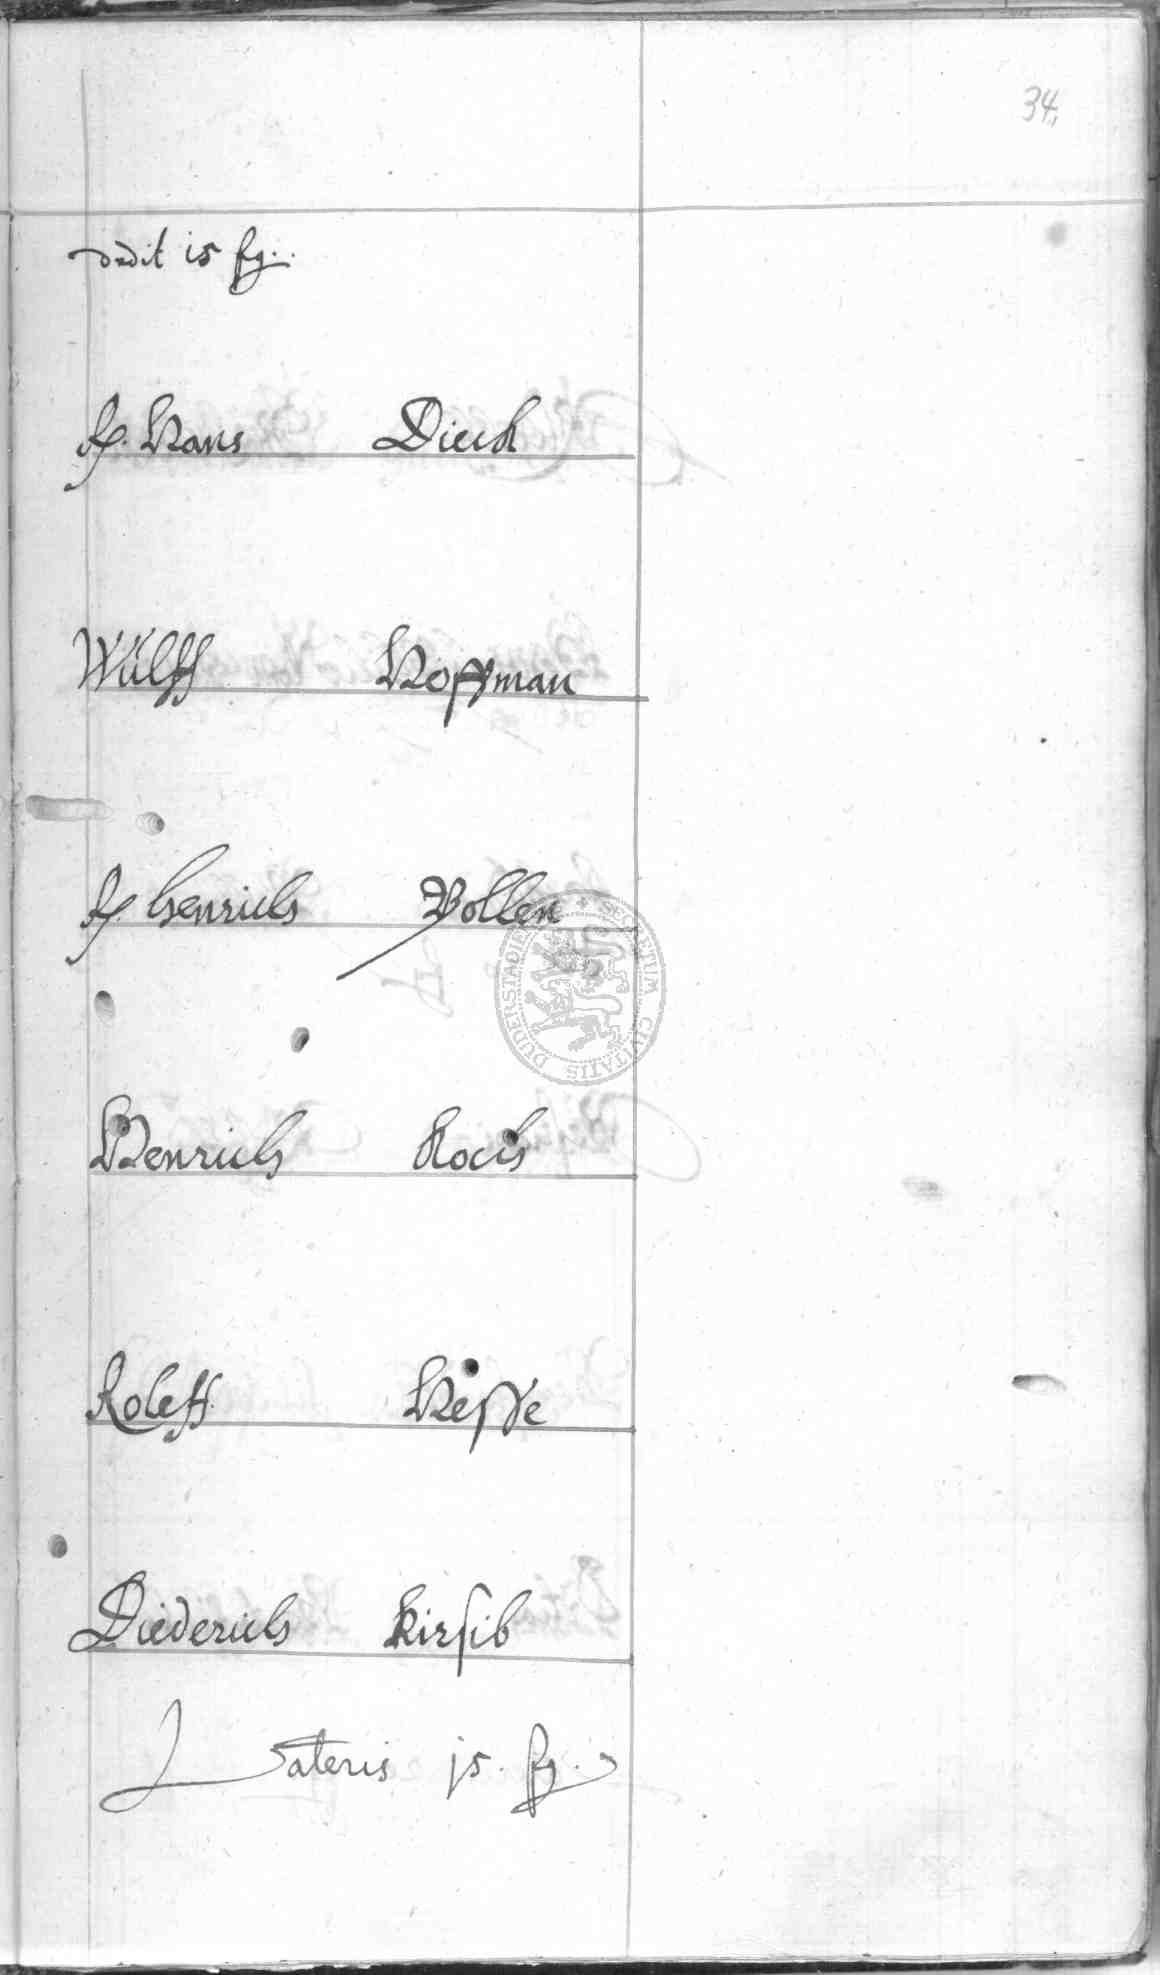 34.
dedit 15 ßg.
Hans Dieck
Wülff Hoffman
Henrich Bollen
Henrich Koch
Roleff Hesse
Diederich
Lateris 15. ßg.
SECRETUM CIVITATIS DUDERSTADIENSIS